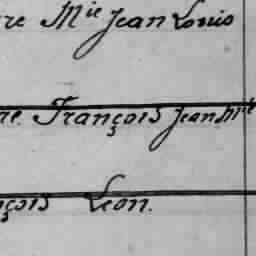 re Mie Jean Louis
re. François Jean Bte
çois Léon.